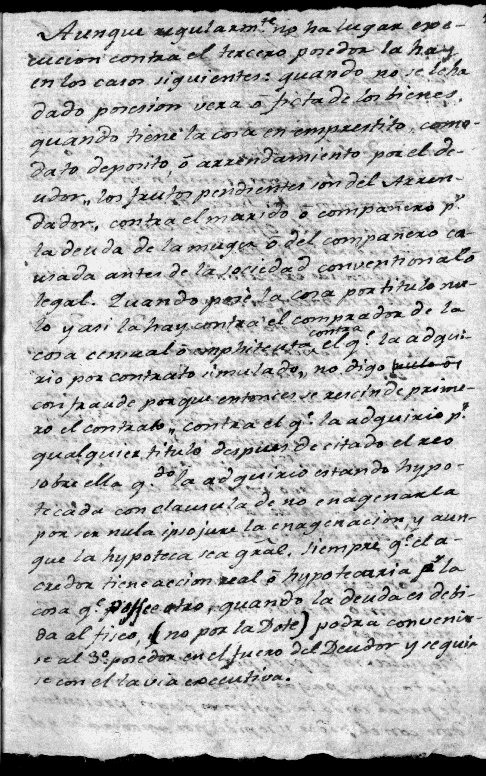 Aunque regularm.te no ha lugar exe-
cucion contra el tercero posedor la hay
en los casos siguientes: quando no se le ha
dado posesion vera ô ficta de los bienes,
quando tiene la cosa en emprestito, como-
dato deposito, ô arrendamiento por el de-
udor,, los frutos pendientes son del Arren-
dador,, contra el marido ô compañero p.r
la deuda de la muger ô del compañero ca-
usada antes de la sociedad conventional ô
legal. Quando posè la cosa por titulo nu-
lo y asi la hay contra el comprador de la
cosa censual ô emphiteuta contra el q.e la adqui-
rio por contrato simulado,, no digo
con fraude porque entonces se rescinde prime-
ro el contrato,, contra el q.e la adquirio p.r
qualquier titulo despues de citado el reo
sobre ella q.do la adquirio estando hypo-
tecada con clausula de no enagenarla
por ser nula ipso jure la enagenacion y aun-
que la hypoteca sea gral, siempre q.e el a-
credor tiene accion real ô hypotecaria p.r la
cosa q.e possee otro, quando la deuda es debi-
da al fisco, (no por la Dote) podra convenir-
se al 3.o posedor en el fuero del Deudor y seguir-
se con el la via executiva.